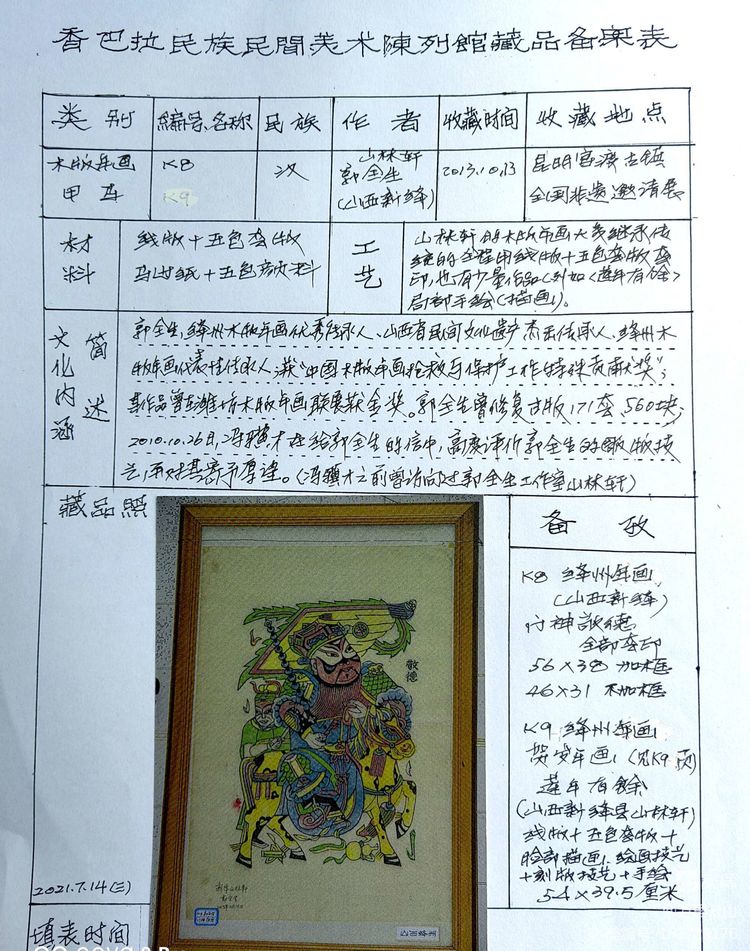 香巴拉民族民間美术陳列館藏品备案表
类别 編号、名称 民族 作者 收藏时间 收藏地点
木版年画
甲马
K8
K9
汉
山林轩
郭全生
(山西新绛)
2013.10.13
昆明官渡古镇
全国非遗邀请展
材料
线版+五色套版
马山纸+五色颜料
工艺
山林轩的木版年画大多继承传
统的全程用线版+五色套版套
印,也有少量作品(例如《莲年有馀》
局部手绘(描画)。
文化内涵
简述
郭全生,绛州木版年画优秀传承人、山西省民间文化遗产杰出传承人、绛州木
版年画代表性传承人,获"中国木版年画抢救与保护工作特殊贡献奖";
其作品曾在潍坊木版年画联展获金奖。郭全生曾修复古版171套、560块;
2010.10.26日,冯骥才在给郭全生的信中,高度评价郭全生的雕版技
艺,并对其寄予厚望。(冯骥才之前曾访问过郭全生工作室山林轩)
藏品照
敬德
备考
K8 绛州年画
(山西新绛)
门神敬德
全部套印
56×38 加框
46×31 不加框
K9 绛州年画
贺岁年画(见K9页)
莲年有馀
(山西新绛县山林轩)
线版+五色套版+
脸部描画、绘画技艺
+刻版技艺+手绘
54×39.5厘米
2021.7.14(三)
填表时间